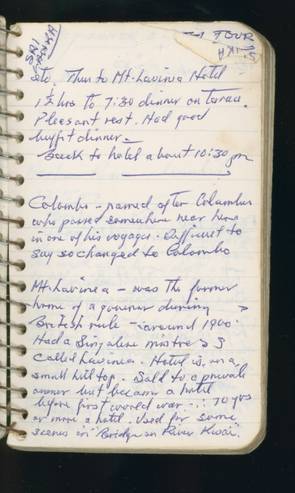 SRI LANKA
TOUR
etc. Then to Mt. Lavinia Hotel
1½ hrs to 7:30 dinner on terrace.
Pleasant rest. Had good
buffet dinner.
Back to hotel about 10:30 pm
Colombo - named after Columbus
who passed somewhere near here
in one of his voyages. Difficult to
say so changed to Colombo
Mt. Lavinea - was the former
home of a governer during
British rule - around 1900.
Had a Singalese mistress
called Lavinea. Hotel is on a
small hill top. Sold to a private
owner but became a hotel
before first world war. 70 yrs
or more a hotel. Used for some
scenes in "Bridge on River Kwai.